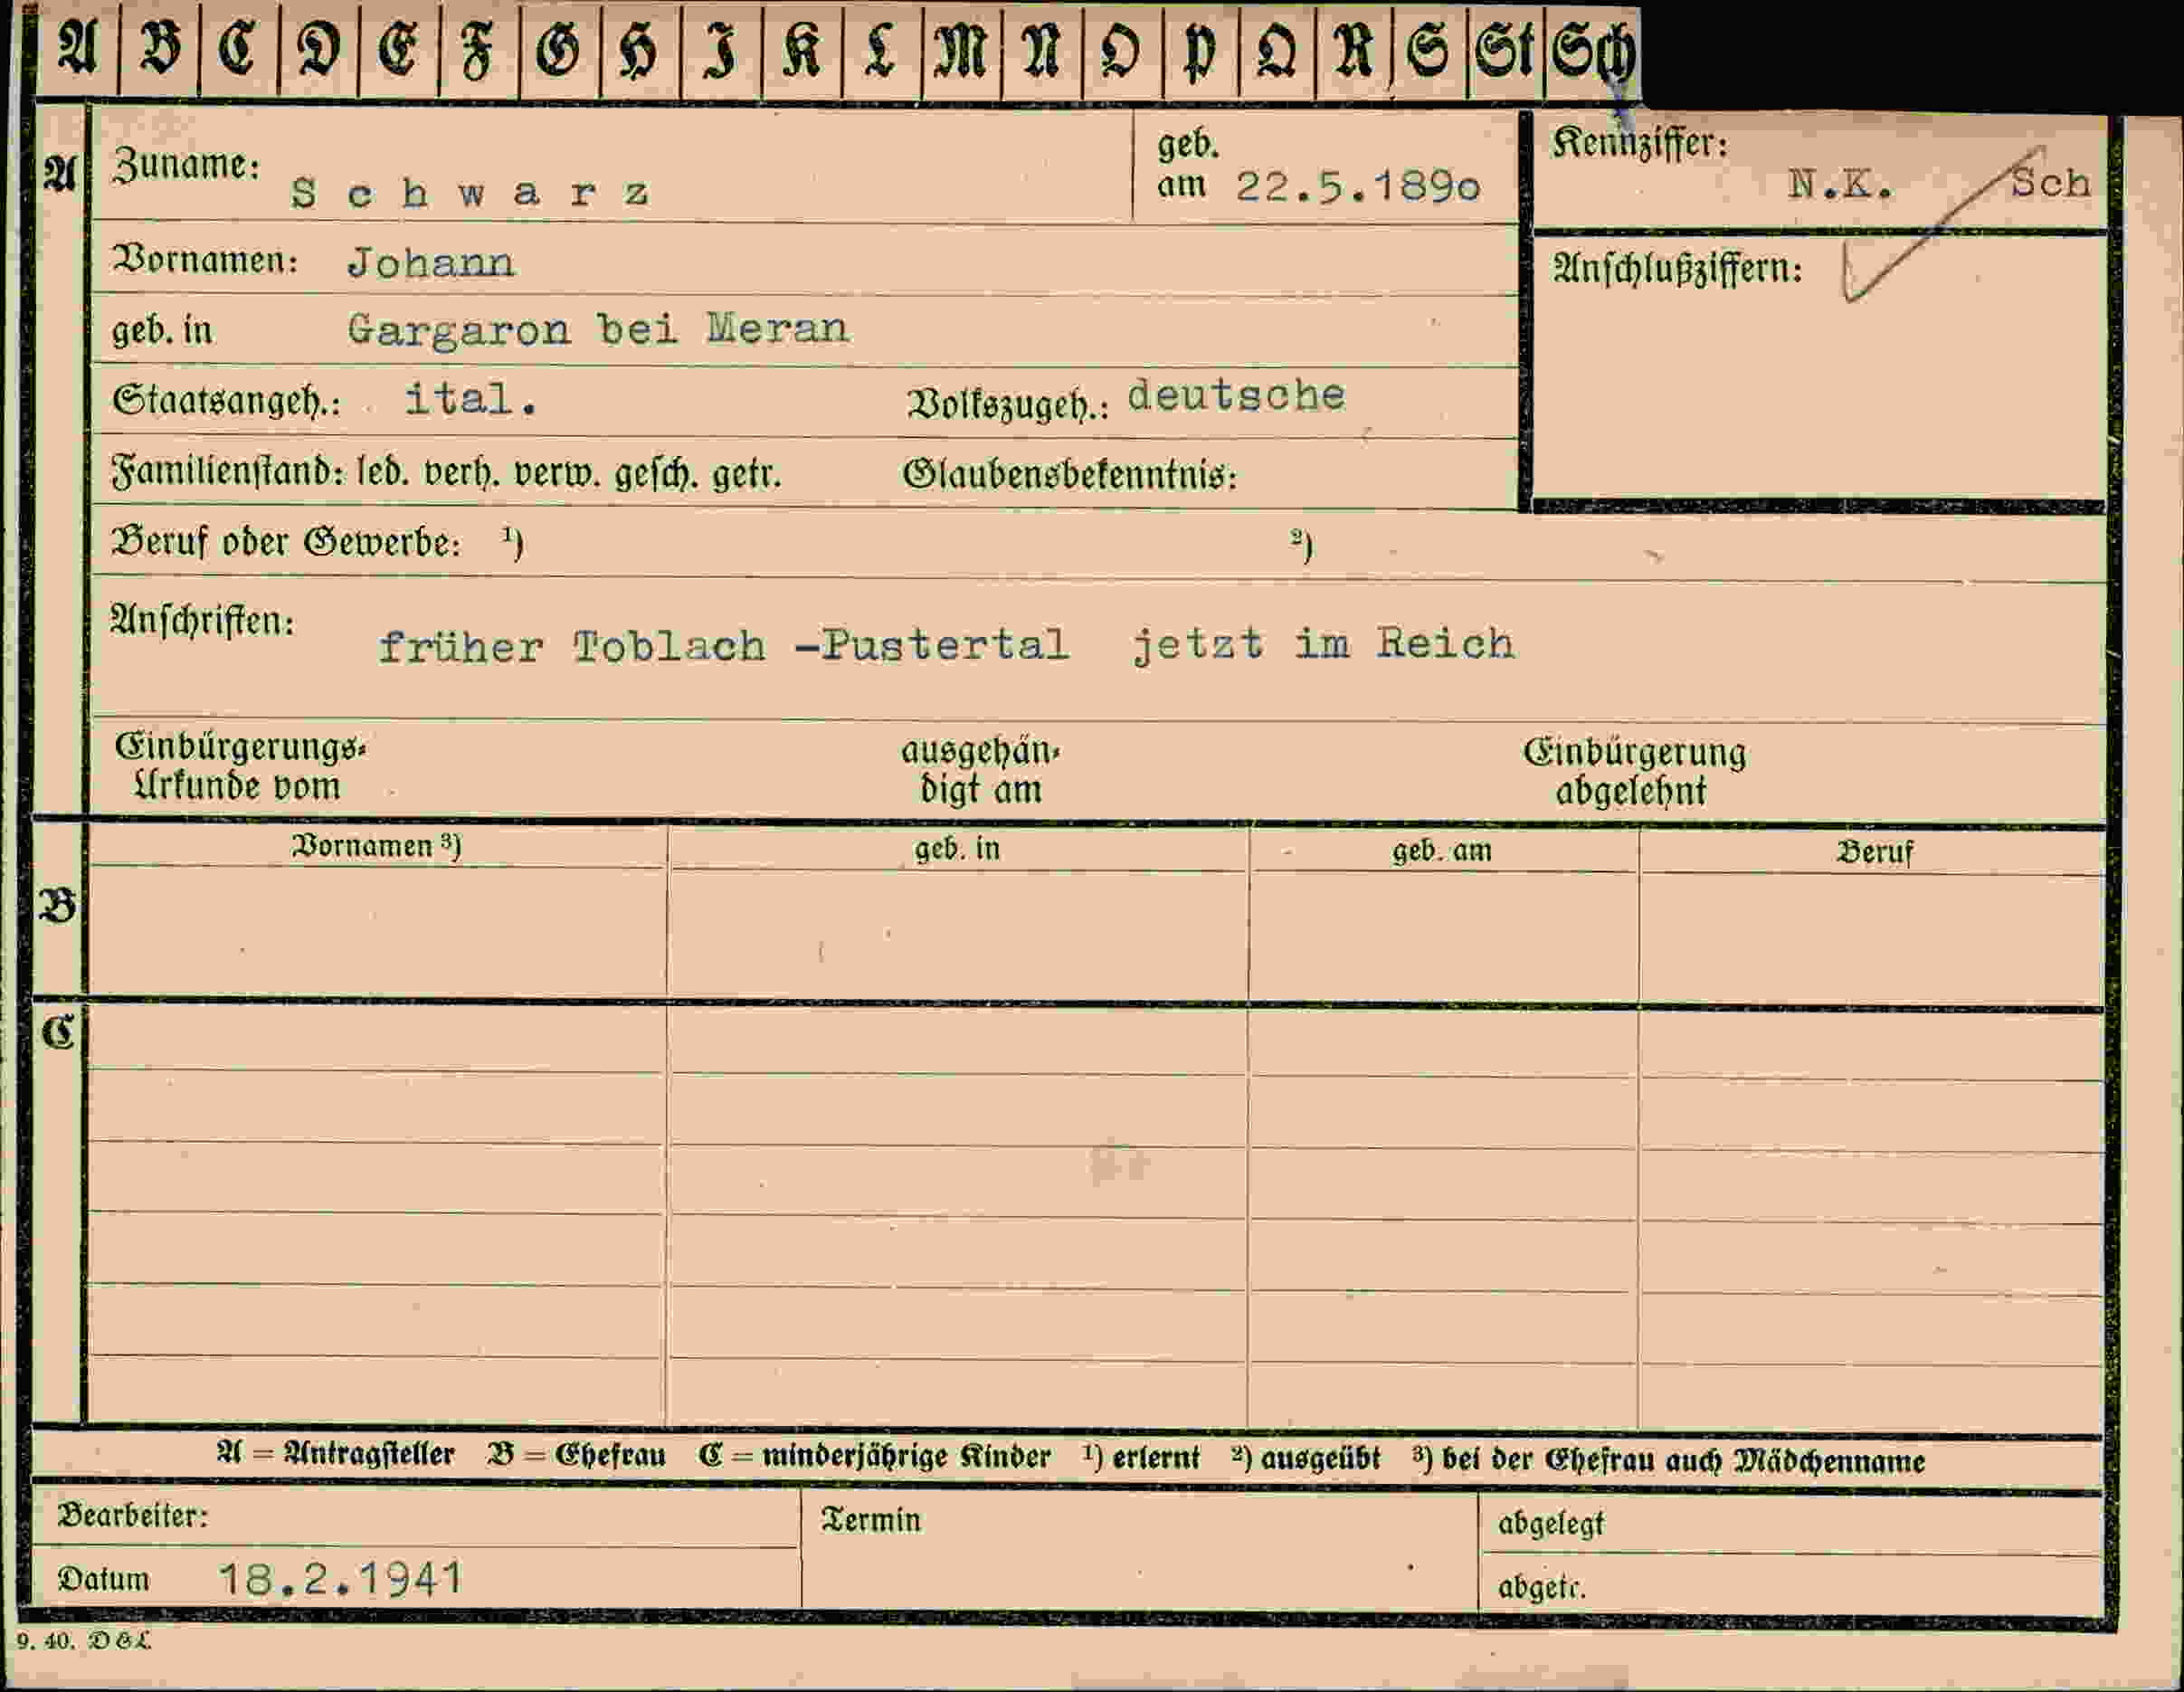 A B C D E F G H I K L M N O P Q R S St Sch
A Zuname: Schwarz geb. am 22.5.189o Kennziffer: N.K. Sch
Vornamen: Johann Anschlußziffern:
geb. in Gargaron bei Meran
Staatsangeh.: ital. Volkszugeh.: deutsche
Familienstand: led. verh. verw. gesch. getr. Glaubensbekenntnis:
Beruf oder Gewerbe: ¹) ²)
Anschriften: früher Toblach -Pustertal jetzt im Reich
Einbürgerungs- ausgehän- Einbürgerung
Urkunde vom digt am abgelehnt
Vornamen ³) geb. in geb. am Beruf
B
C
A = Antragsteller B = Ehefrau C = minderjährige Kinder ¹) erlernt ²) ausgeübt ³) bei der Ehefrau auch Mädchenname
Bearbeiter: Termin abgelegt
Datum 18.2.1941 abgetr.
9. 40. D&L